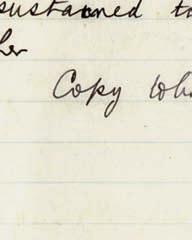 sustained to
her
Copy Wh